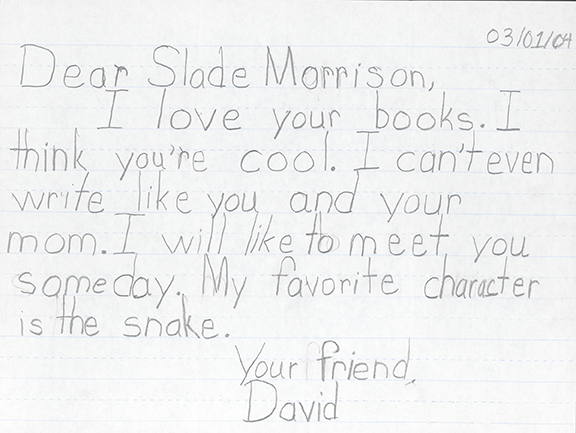 03/01/04
Dear Slade Morrison,
I love your books. I
think you're cool. I can't even
write like you and your
mom. I will like to meet you
someday. My favorite character
is the snake.
Your friend,
David